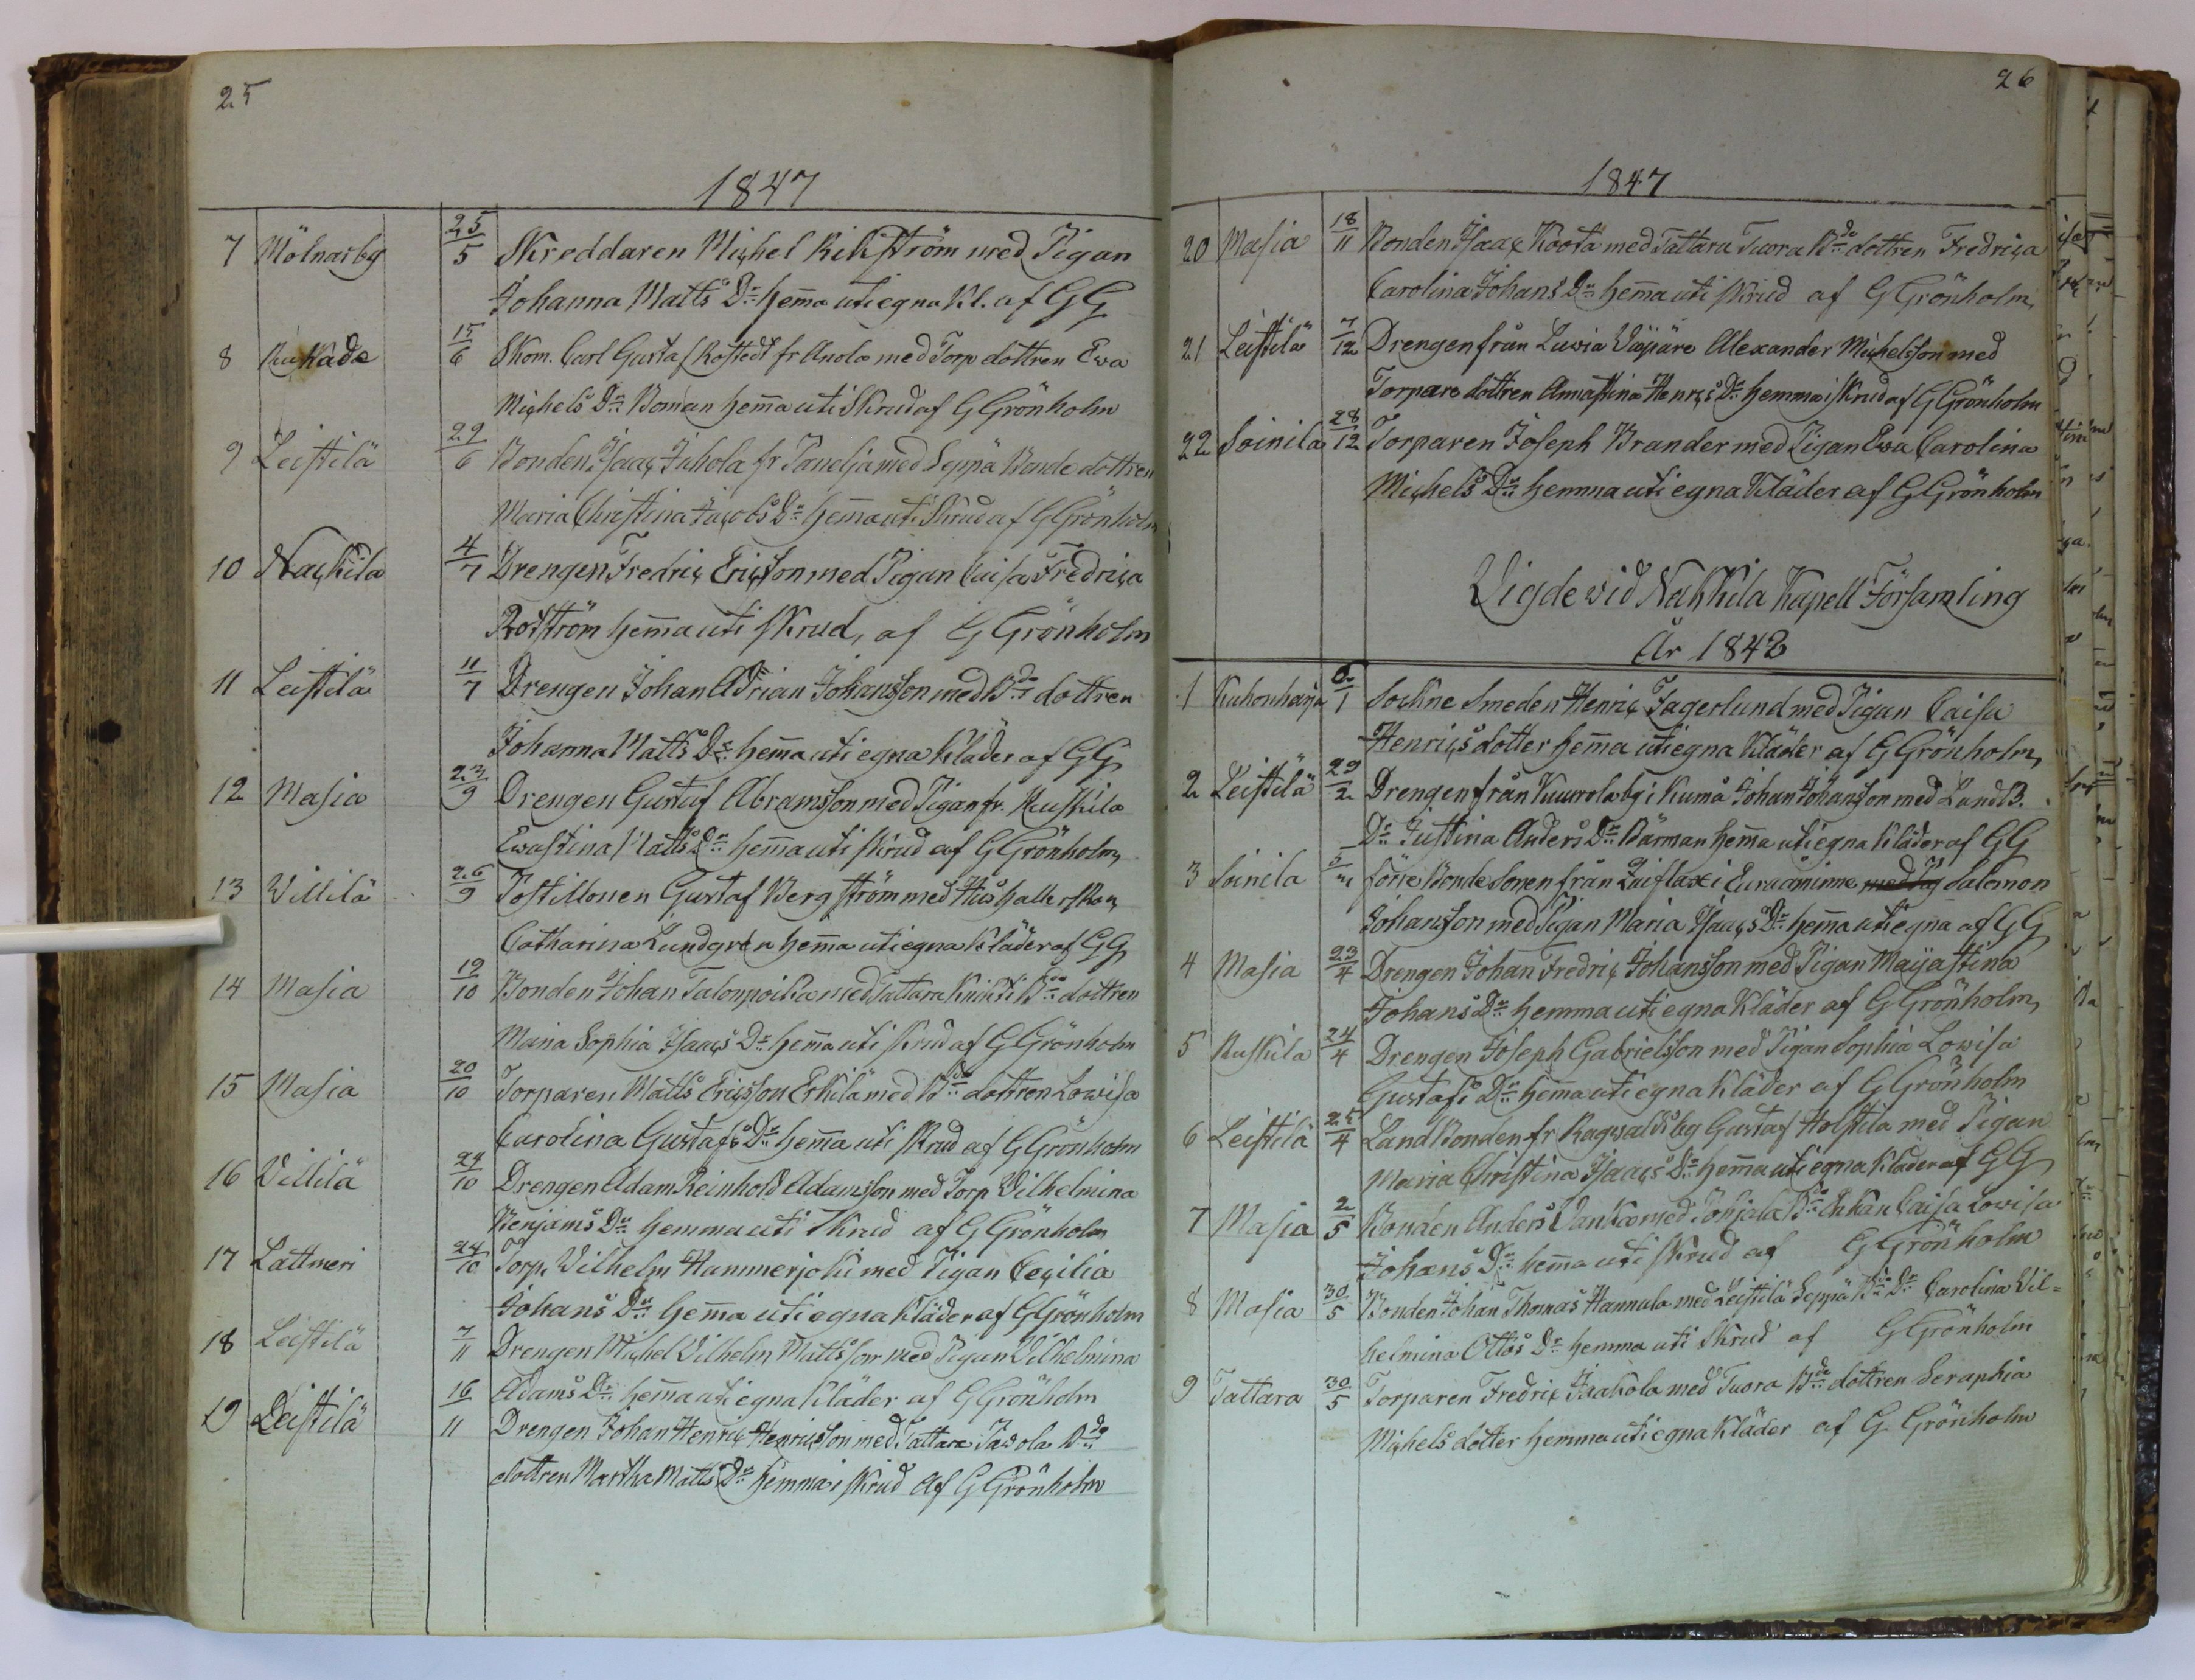 25
1847
7 Mölnarby 25/5 Skreddaren Michel Rikström med Pigan
Johanna Matts Dr hema uti egna Kl. af GG
8 Kukada 15/6 Skom. Carl Gustaf Rostedt fr Anola med Torp dottren Ewa
Michels Dr Boman hema uti Skrud af G Grönholm
9 Leistilä 29/6 Bonden Isaac Juhola fr Tanelja med Leppä Bonde dottren
Maria Christina Jacobs Dr hema uti Skrud af G Grönholm
10 Nackila 4/7 Drengen Fredric Ericsson med Pigan Caisa Fredrica
Roström hema uti skrud, af G Grönholm
11 Leistilä 11/7 Drengen Johan Adrian Johansson med Bde dottren
Johanna Matts Dr hema uti egna kläder af GG
12 Masia 23/9 Drengen Gustaf Abramsson med Pigan fr. Ruskila
Ewastina Matts Dr hema uti skrud af G Grönholm
13 Villilä 26/9 Postillonen Gustaf Bergström med Hushållerskan
Catharina Lundgren hema uti egna Kläder af GG
14 Masia 19/10 Bonden Johan Talonpoika med Tattara Knihti Bde dottren
Maria Sophia Isaacs Dr hema uti skrud af G Grönholm
15 Masia 20/10 Torparen Matts Ericsson Erkilä med Bde dottren Lowisa
Carolina Gustafs Dr hema uti skrud af G Grönholm
16 Villilä 24/10 Drengen Adam Reinhold Adamsson med Torp Wilhelmina
Benjams Dr hemma uti skrud af G Grönholm
17 Lattmeri 24/10 Torp. Wilhelm Hammerjoki med Pigan Cecilia
Johans Dr hema uti egna Kläder af G Grönholm
18 Leistilä 7/11 Drengen Michel Vilhelm Mattsson med Pigan Vilhelmina
Adams Dr hema uti egna Kläder af G Grönholm
19 Leistilä 16/11 Drengen Johan Henric Henricsson med Tattara Jawola Bde
dottren Martha Matts Dr hemma i skrud af G Grönholm
26
1847
20 Masia 18/11 Bonden Isaac Koota med Tattara Tuora Bde dottren Fredrica
Carolina Johans Dr hema uti skrud af G Grönholm
21 Leistilä 7/12 Drengen från Luvia Väipäre Alexander Michelsson med
Torpare dottren Annastina Henrics Dr hemma i skrud af G Grönholm
22 Soinila 28/12 Torparen Joseph Brander med Pigan Ewa Carolina
Michels Dr hemma uti egna Kläder af G Grönholm
Vigde wid Nakkila Kapell Församling
År 1848
1 Kukonharja 6/1 Sockne Smeden Henric Fagerlund med Pigan Caisa
Henrics dotter hema uti egna Kläder af G Grönholm
2 Leistilä 29/2 Drengen från Kuurola by i Kumå Johan Johansson med Land B.
Dr Justina Anders Dr Bärman hema uti egna Kläder af GG
3 Soinila förre Bondesonen från i Euraåminne med Pig Salomon
Johansson med Pigan Maria Isaacs Dr hema uti egna af GG
4 Masia 23/4 Drengen Johan Fredric Johansson med Pigan Maijastina
Johans Dr hemma uti egna Kläder af G Grönholm
5 Ruskila 24/4 Drengen Joseph Gabrielsson med Pigan Sophia Lowisa
Gustafs Dr hema uti egna Kläder af G Grönholm
6 Leistilä 25/4 LandBonden fr Ragvalds by Gustaf Holstila med Pigan
Maria Christina Isaacs Dr hema uti egna kläder af GG
7 Masia 2/5 Bonden Anders Vanka med Pohjala Bde Enkan Caisa Lowisa
Johans Dr hema uti skrud af G Grönholm
8 Masia 30/5 Bonden Johan Thomas Hannula med Leistilä Seppä Bde Dr Carolina Vil=
helmina Ottos Dr hemma uti Skrud af G Grönholm
9 Tattara 30/5 Torparen Fredric Jaakola med Tuora Bde dottren Seraphia
Michels dotter hemma uti egna Kläder af G Grönholm